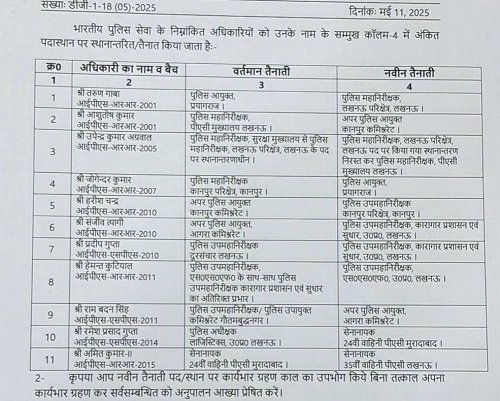 संख्याः डीजी-1-18 (05)-2025 दिनांकः मई 11, 2025
भारतीय पुलिस सेवा के निम्नांकित अधिकारियों को उनके नाम के सम्मुख कॉलम-4 में अंकित
पदास्थान पर स्थानान्तरित/तैनात किया जाता है:-
क्र0 अधिकारी का नाम व बैच वर्तमान तैनाती नवीन तैनाती
1 2 3 4
1 श्री तरुण गाबा
आईपीएस-आरआर-2001 पुलिस आयुक्त,
प्रयागराज । पुलिस महानिरीक्षक,
लखनऊ परिक्षेत्र, लखनऊ ।
2 श्री आशुतोष कुमार
आईपीएस-आरआर-2001 पुलिस महानिरीक्षक,
पीएसी मुख्यालय लखनऊ । अपर पुलिस आयुक्त
कानपुर कमिश्नरेट ।
3 श्री उपेन्द्र कुमार अग्रवाल
आईपीएस-आरआर-2005 पुलिस महानिरीक्षक, सुरक्षा मुख्यालय से पुलिस
महानिरीक्षक, लखनऊ परिक्षेत्र, लखनऊ के पद
पर स्थानान्तरणाधीन । पुलिस महानिरीक्षक, लखनऊ परिक्षेत्र,
लखनऊ पद पर किया गया स्थानान्तरण
निरस्त कर पुलिस महानिरीक्षक, पीएसी
मुख्यालय लखनऊ ।
4 श्री जोगेन्दर कुमार
आईपीएस-आरआर-2007 पुलिस महानिरीक्षक
कानपुर परिक्षेत्र, कानपुर । पुलिस आयुक्त,
प्रयागराज ।
5 श्री हरीश चन्द्र
आईपीएस-आरआर-2010 अपर पुलिस आयुक्त
कानपुर कमिश्नरेट । पुलिस उपमहानिरीक्षक
कानपुर परिक्षेत्र, कानपुर ।
6 श्री संजीव त्यागी
आईपीएस-आरआर-2010 अपर पुलिस आयुक्त,
आगरा कमिश्नरेट । पुलिस उपमहानिरीक्षक, कारागार प्रशासन एवं
सुधार, उ0प्र0, लखनऊ ।
7 श्री प्रदीप गुप्ता
आईपीएस-एसपीएस-2010 पुलिस उपमहानिरीक्षक
दूरसंचार लखनऊ । पुलिस उपमहानिरीक्षक, कारागार प्रशासन एवं
सुधार, उ0प्र0, लखनऊ ।
8 श्री हेमन्त कुटियाल
आईपीएस-आरआर-2011 पुलिस उपमहानिरीक्षक,
एस0एस0एफ0 के साथ-साथ पुलिस
उपमहानिरीक्षक कारागार प्रशासन एवं सुधार
का अतिरिक्त प्रभार । पुलिस उपमहानिरीक्षक,
एस0एस0एफ0, उ0प्र0, लखनऊ ।
9 श्री राम बदन सिंह
आईपीएस-एसपीएस-2011 पुलिस उपमहानिरीक्षक/ पुलिस उपायुक्त
कमिश्नरेट गौतमबुद्धनगर । अपर पुलिस आयुक्त,
आगरा कमिश्नरेट ।
10 श्री रमेश प्रसाद गुप्ता
आईपीएस-एसपीएस-2014 पुलिस अधीक्षक
लाजिस्टिक्स, उ0प्र0 लखनऊ । सेनानायक
24वीं वाहिनी पीएसी मुरादाबाद ।
11 श्री अमित कुमार-II
आईपीएस-आरआर-2015 सेनानायक
24वीं वाहिनी पीएसी मुरादाबाद । सेनानायक
35वीं वाहिनी पीएसी लखनऊ ।
2- कृपया आप नवीन तैनाती पद/स्थान पर कार्यभार ग्रहण काल का उपभोग किये बिना तत्काल अपना
कार्यभार ग्रहण कर सर्वसम्बन्धित को अनुपालन आख्या प्रेषित करें।